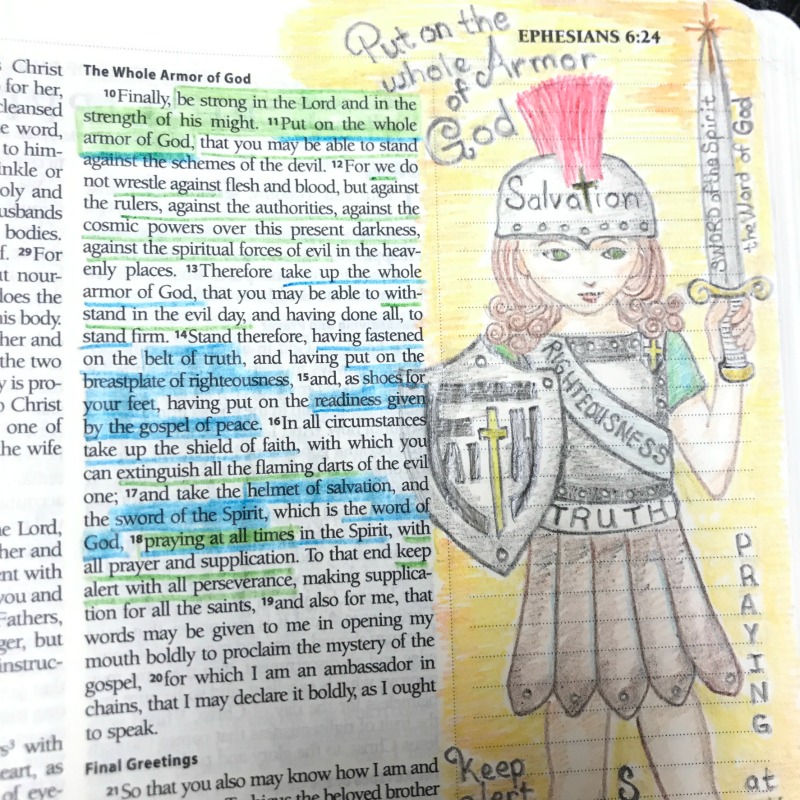 EPHESIANS 6:24
Christ
for her,
cleansed
e word,
to him-
inkle or
oly and
usbands
bodies.
f. 29For
ut nour-
does the
his body.
her and
the two
y is pro-
Christ
one of
the wife
e Lord,
her and
ent with
you and
Fathers,
ger, but
instruc-
s³ with
eart, as
of eye-
The Whole Armor of God
10Finally, be strong in the Lord and in the
strength of his might. 11Put on the whole
armor of God, that you may be able to stand
against the schemes of the devil. 12For we do
not wrestle against flesh and blood, but against
the rulers, against the authorities, against the
cosmic powers over this present darkness,
against the spiritual forces of evil in the heav-
enly places. 13Therefore take up the whole
armor of God, that you may be able to with-
stand in the evil day, and having done all, to
stand firm. 14Stand therefore, having fastened
on the belt of truth, and having put on the
breastplate of righteousness, 15and, as shoes for
your feet, having put on the readiness given
by the gospel of peace. 16In all circumstances
take up the shield of faith, with which you
can extinguish all the flaming darts of the evil
one; 17and take the helmet of salvation, and
the sword of the Spirit, which is the word of
God, 18praying at all times in the Spirit, with
all prayer and supplication. To that end keep
alert with all perseverance, making supplica-
tion for all the saints, 19and also for me, that
words may be given to me in opening my
mouth boldly to proclaim the mystery of the
gospel, 20for which I am an ambassador in
chains, that I may declare it boldly, as I ought
to speak.
Final Greetings
21So that you also may know how I am and
the beloved brother
Put on the
whole Armor
of
God
Salvation
SWORD of the Spirit
the Word of God
RIGHTEOUSNESS
TRUTH
PRAYING
at
Keep
alert
S